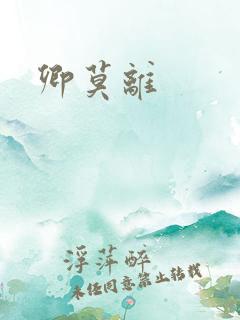 卿莫離
浮萍醉
未经同意禁止转载